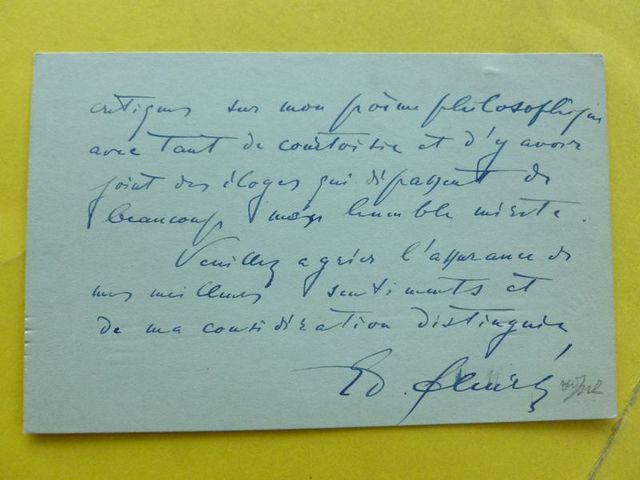 critiques sur mon poème philosophique
avec tant de courtoisie et d'y avoir
joint des éloges qui dépassent de
beaucoup mon humble mérite.
Veuillez agréer l'assurance de
mes meilleurs sentiments et
de ma considération distinguée
Ed.